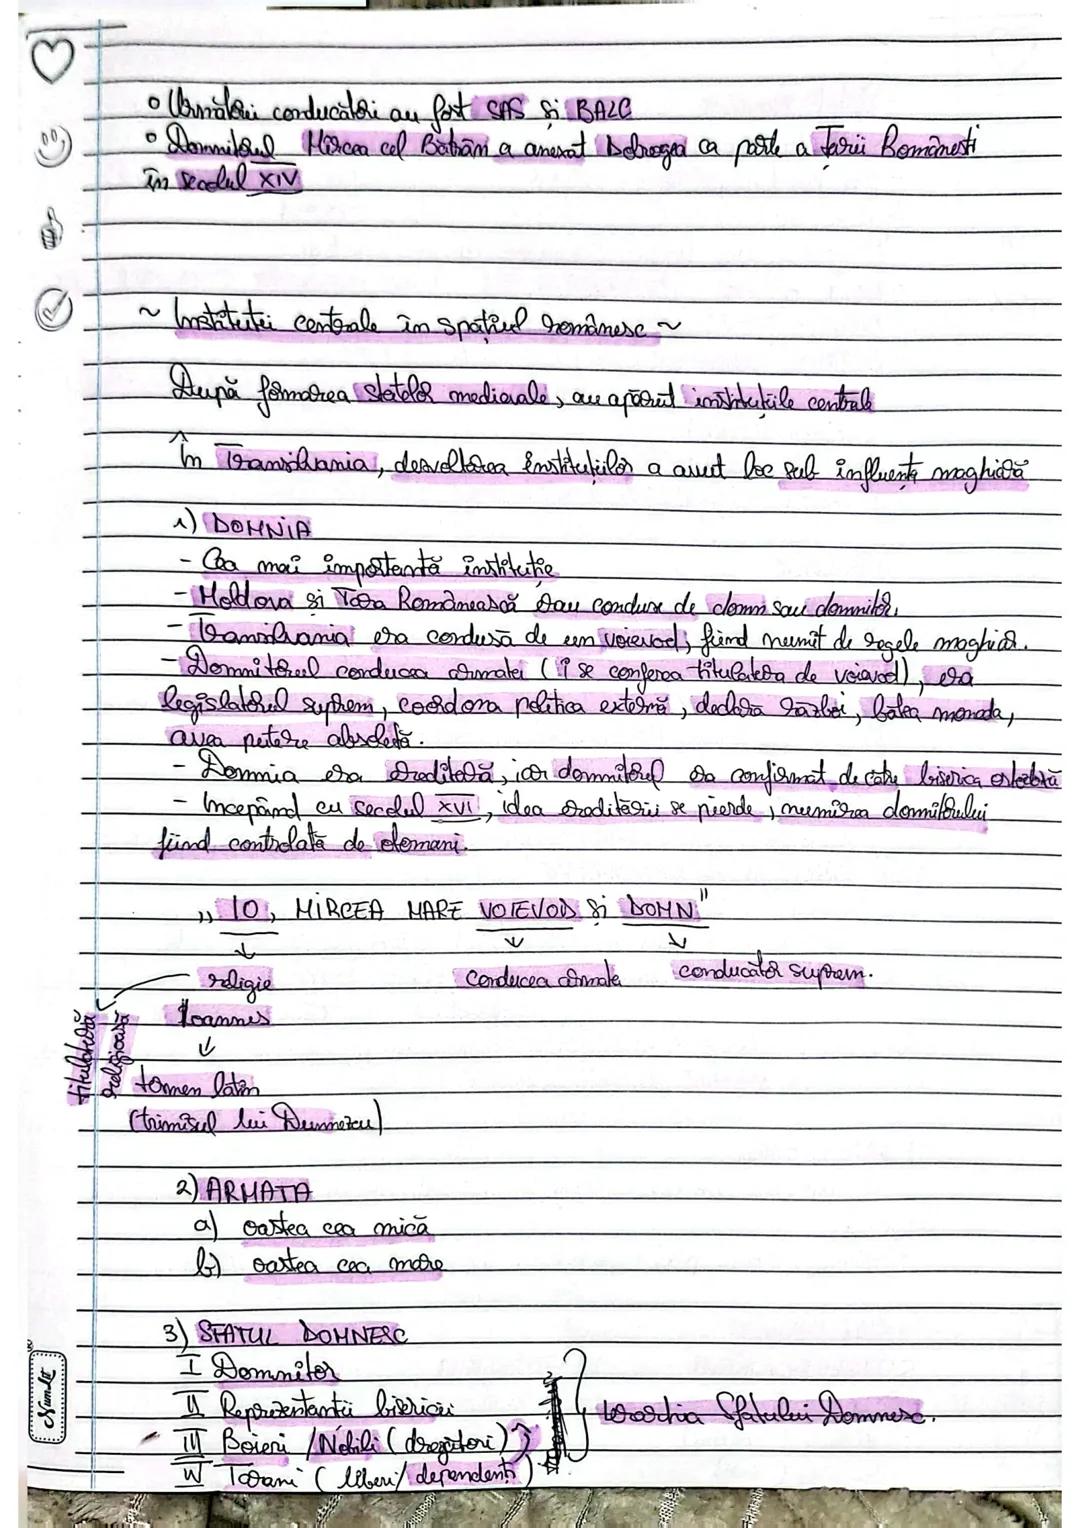 Următorii conducători au fost SAS și BALC
Domnitorul Mircea cel Bătrân a anexat Dobrogea ca parte a Țării Românești
în secolul XIV
~ Instituții centrale în spațiul românesc ~
După formarea statelor medievale, au apărut instituțiile centrale
În Transilvania, dezvoltarea instituțiilor a avut loc sub influență maghiară
1) DOMNIA
- Cea mai importantă instituție
- Moldova și Țara Românească erau conduse de domn sau domnitor.
- Transilvania era condusă de un voievod, fiind numit de regele maghiar.
- Domnitorul conducea armatei (îi se conferea titulatura de voievod), era
legislatorul suprem, coordona politica externă, declara război, bătea moneda,
avea putere absolută.
- Domnia era ereditară, iar domnitorul era confirmat de către biserica ortodoxă
- Începând cu secolul XVI, idea eredității se pierde, numirea domnitorului
fiind controlată de otomani.
„IO, MIRCEA MARE VOIEVOD și DOMN"
religie conducea armata conducător suprem.
Ioannes
titulatură
religioasă
tomen latin
(trimisul lui Dumnezeu)
2) ARMATA
a) oastea cea mică
b) oastea cea mare
3) SFATUL DOMNESC
I Domnitor
II Reprezentanții bisericii
III Boieri / Nobili (dregători)
IV Țărani (liberi / dependenți)
Ierarhia Sfatului Domnesc.